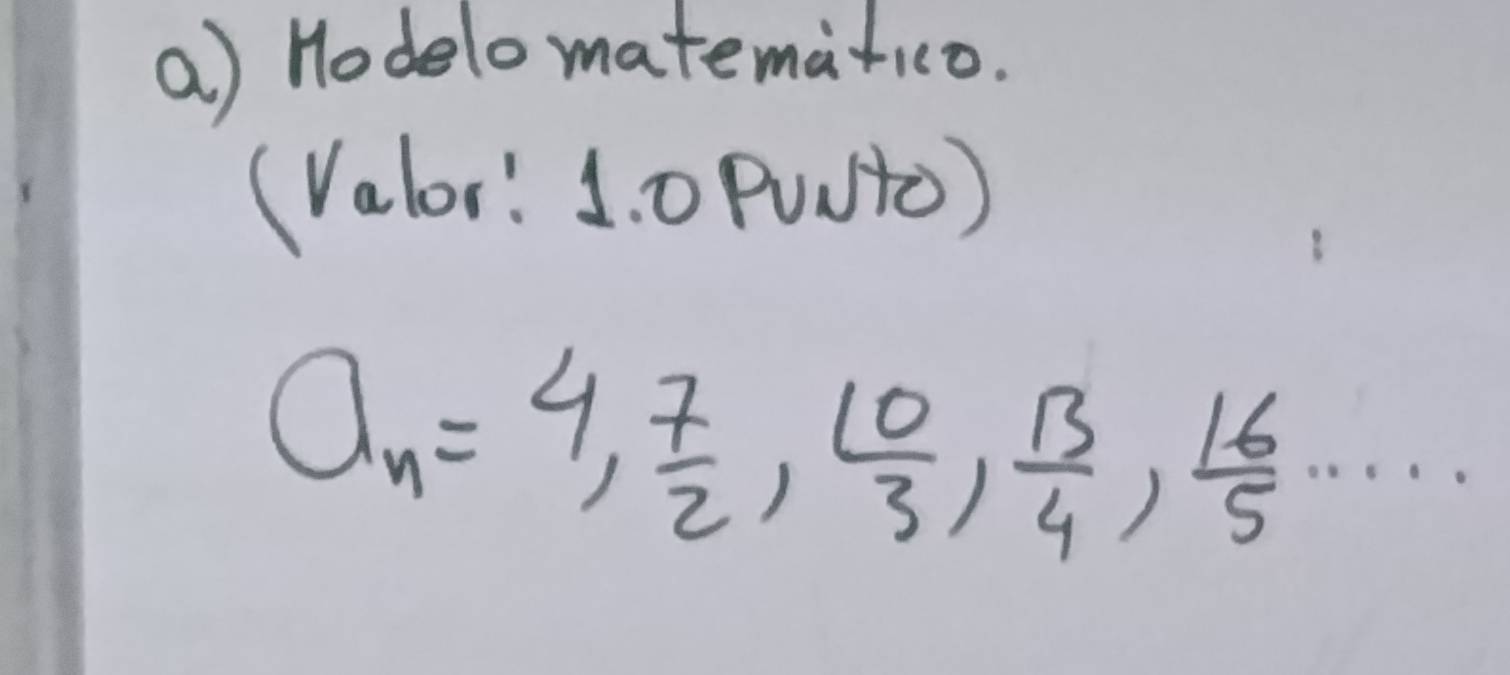 a) Modelo matemático.
(Valor: 1.0 PUNto)
an= 4, 7/2, 10/3, 13/4, 16/5 .....